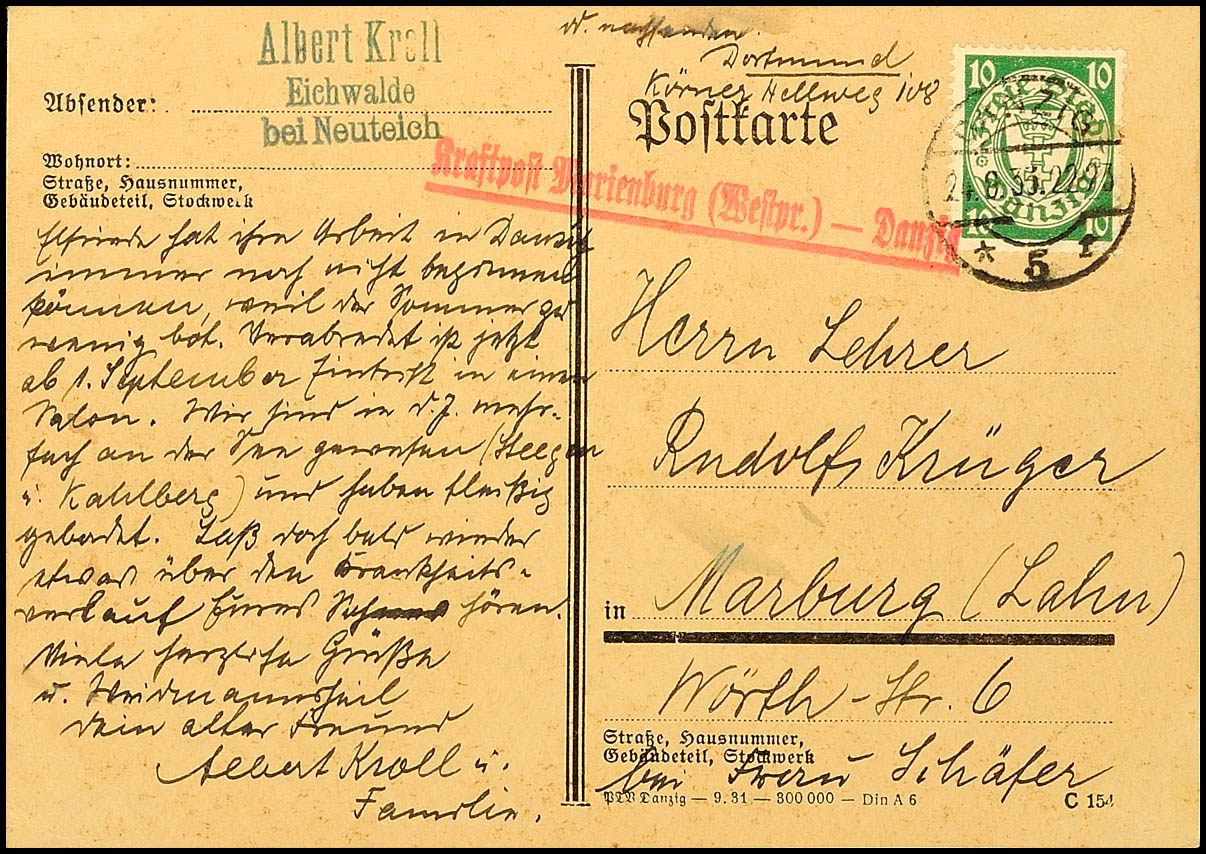 Albert Kroll
Eichwalde
bei Neuteich
Absender:
Wohnort:
Straße, Hausnummer,
Gebäudeteil, Stockwerk
Elfriede hat ihre Arbeit in Danzig
immer noch nicht begonnen
können, weil der Sommer zu
wenig bot. Verabredet ist jetzt
ab 1. September Eintritt in einen
Salon. Wir sind in d. J. mehr-
fach an der See gewesen (Steegen
u. Kahlberg) und haben fleißig
gebadet. Laß doch bald wieder
etwas über den Krankheits-
verlauf Eures hören.
Viele herzliche Grüße
u. Weidmannsheil
Dein alter Freund
Albert Kroll u.
Familie.
Dortmund
Körner Hellweg 108
Postkarte
Kraftpost Marienburg (Westpr.) — Danzig
10 10
Freie Stadt
Danzig
10 10
DANZIG
24.8.35.22-23
* 5 r
Herrn Lehrer
Rudolf Krüger
in Marburg (Lahn)
Wörth-Str. 6
Straße, Hausnummer,
Gebäudeteil, Stockwerk
bei Frau Schäfer
PTV Danzig — 9. 31 — 300 000 — Din A 6
C 154